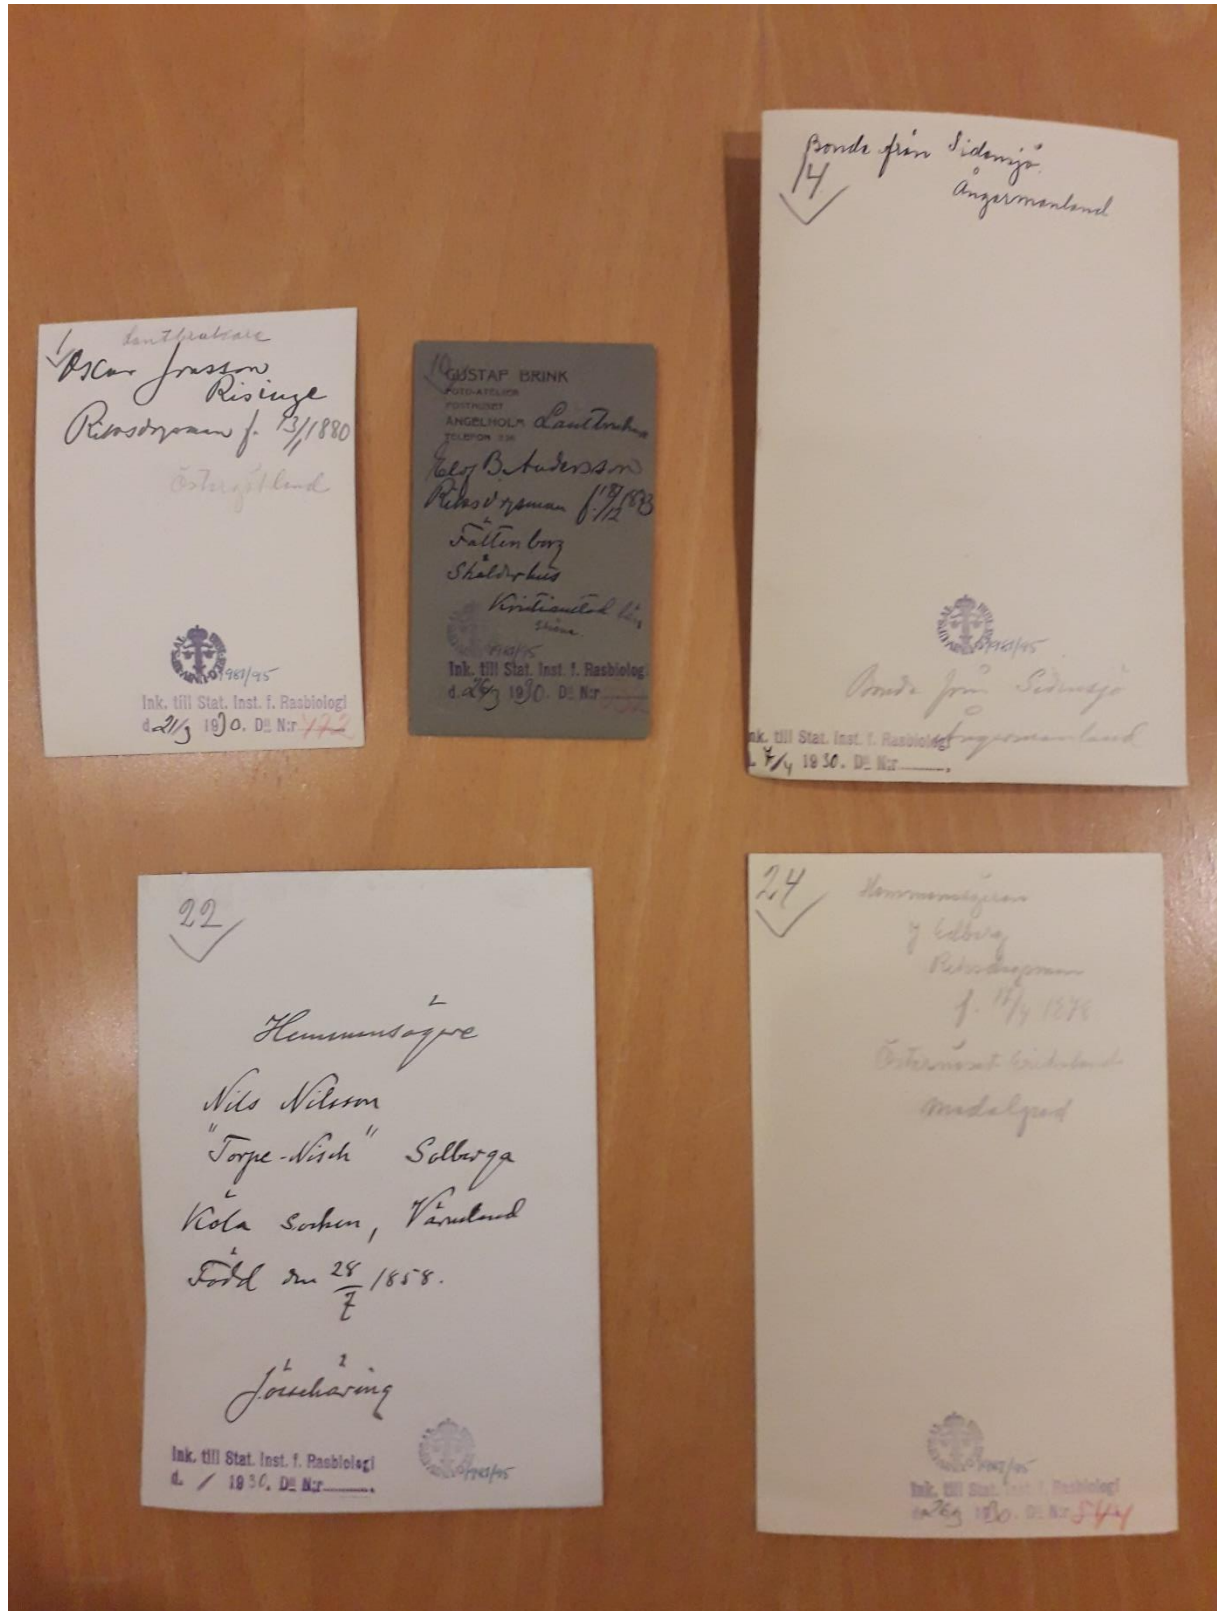 1
Lantbrukare
Oscar Jonsson
Risinge
Riksdagsman f. 13/1 1880
Östergötland
1981/95
Ink. till Stat. Inst. f. Rasbiologi
d. 21/3 1930. Dº N:r 472
10
GUSTAF BRINK
FOTO-ATELIER
POSTHUSET
ÄNGELHOLM Lantbrukare
TELEFON
Elof B. Andersson
Riksdagsman f. 18/12 1873
Fältenborg
Skälderhus
Kristianstad län
Skåne
1981/95
Ink. till Stat. Inst. f. Rasbiologi
d. 26/3 1930. Dº N:r
Bonde från Sidensjö.
14
Ångermanland
1981/95
Bonde från Sidensjö
Ångermanland
Ink. till Stat. Inst. f. Rasbiologi
d. 7/4 1930. Dº N:r
22
Hemmansägare
Nils Nilsson
"Torpe-Nisch" Solberga
Köla socken, Värmland
Född den 28/7 1858.
Jösehäring
Ink. till Stat. Inst. f. Rasbiologi
d. / 1930. Dº N:r
1981/95
24
Hemmansägaren
J Edberg
Riksdagsman
f. 17/4 1878
Österuset
Medelpad
1981/95
Ink. till Stat. Inst. f. Rasbiologi
d. 26/3 1930. Dº N:r 544